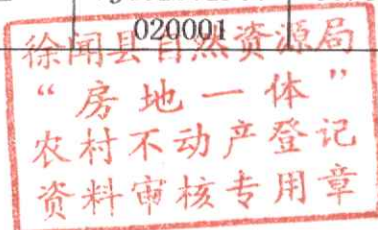 020001
徐闻县自然资源局
“房地一体”
农村不动产登记
资料审核专用章